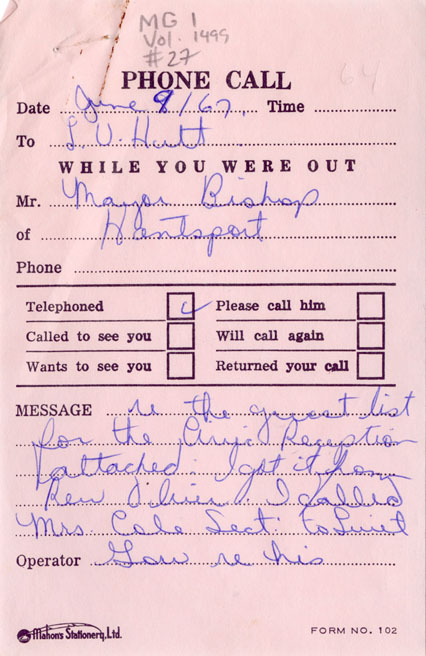 MG 1
Vol. 1499
#27
64
PHONE CALL
Date June 9/67. Time
To L V. Hutt.
WHILE YOU WERE OUT
Mr. Mayor Bishop
of Hantsport
Phone
Telephoned ✓ Please call him
Called to see you Will call again
Wants to see you Returned your call
MESSAGE re the guest list
for the Civic Reception
attached. I got it from
Ken I called
Mrs. Cole Sect. to
re his
Operator
Mahon's Stationery, Ltd. FORM NO. 102